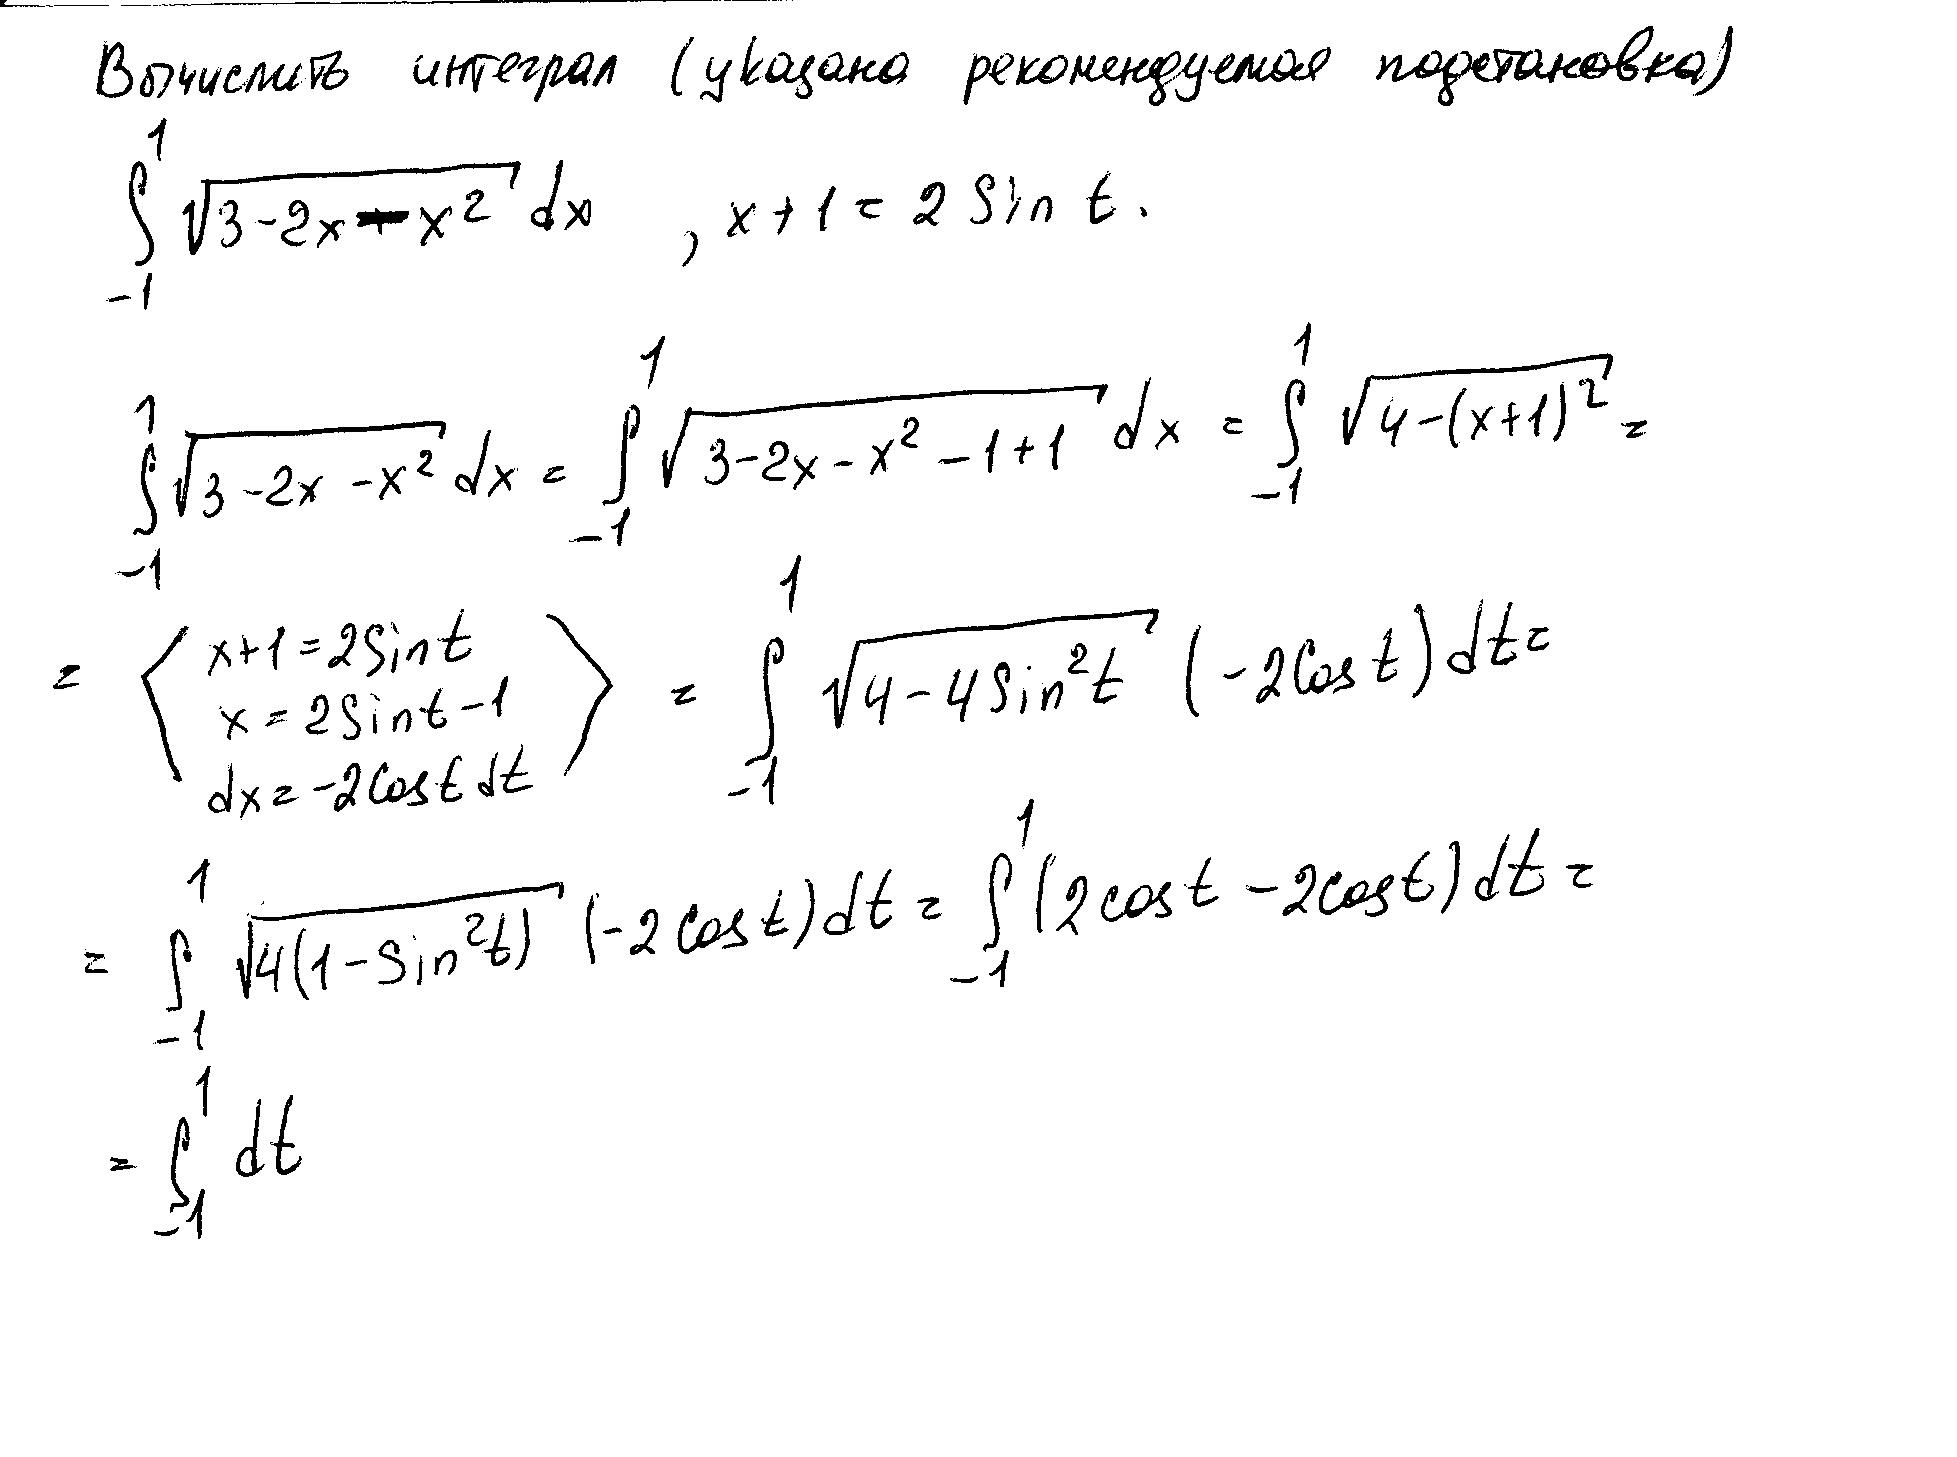 Вычислить интеграл (указана рекомендуемая подстановка)
∫_{-1}^{1} √(3-2x-x²) dx , x+1 = 2 Sin t.
∫_{-1}^{1} √(3-2x-x²) dx = ∫_{-1}^{1} √(3-2x-x²-1+1) dx = ∫_{-1}^{1} √(4-(x+1)²) =
= ⟨ x+1=2Sint
x=2Sint-1
dx=-2Cost dt ⟩ = ∫_{-1}^{1} √(4-4Sin²t) (-2Cost) dt =
= ∫_{-1}^{1} √(4(1-Sin²t)) (-2cost) dt = ∫_{-1}^{1} (2cost-2cost) dt =
= ∫_{-1}^{1} dt